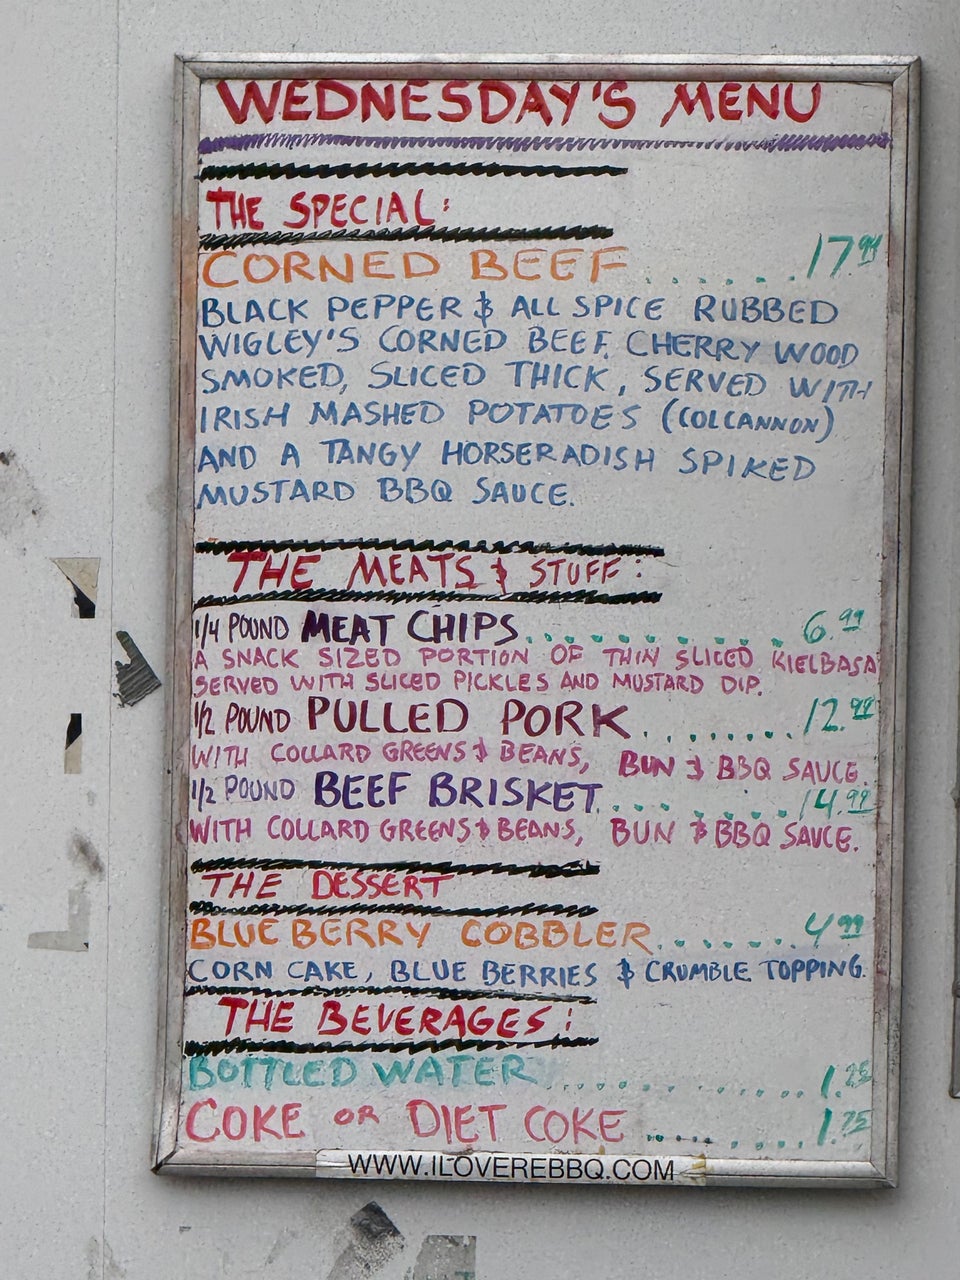 WEDNESDAY'S MENU
THE SPECIAL:
CORNED BEEF ...... 17.99
BLACK PEPPER & ALL SPICE RUBBED
WIGLEY'S CORNED BEEF. CHERRY WOOD
SMOKED, SLICED THICK, SERVED WITH
IRISH MASHED POTATOES (COLCANNON)
AND A TANGY HORSERADISH SPIKED
MUSTARD BBQ SAUCE.
THE MEATS & STUFF:
1/4 POUND MEAT CHIPS............ 6.99
A SNACK SIZED PORTION OF THIN SLICED KIELBASA
SERVED WITH SLICED PICKLES AND MUSTARD DIP.
1/2 POUND PULLED PORK........ 12.99
WITH COLLARD GREENS & BEANS, BUN & BBQ SAUCE.
1/2 POUND BEEF BRISKET......... 14.99
WITH COLLARD GREENS & BEANS, BUN & BBQ SAUCE.
THE DESSERT
BLUE BERRY COBBLER........ 4.99
CORN CAKE, BLUE BERRIES & CRUMBLE TOPPING.
THE BEVERAGES:
BOTTLED WATER .............. 1.25
COKE OR DIET COKE .......... 1.75
WWW.ILOVEREBBQ.COM